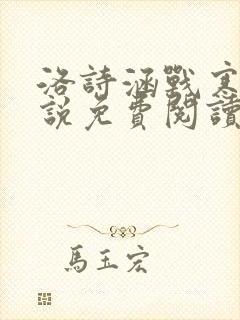 洛詩涵戰寒
說免費閱讀
馬玉宏